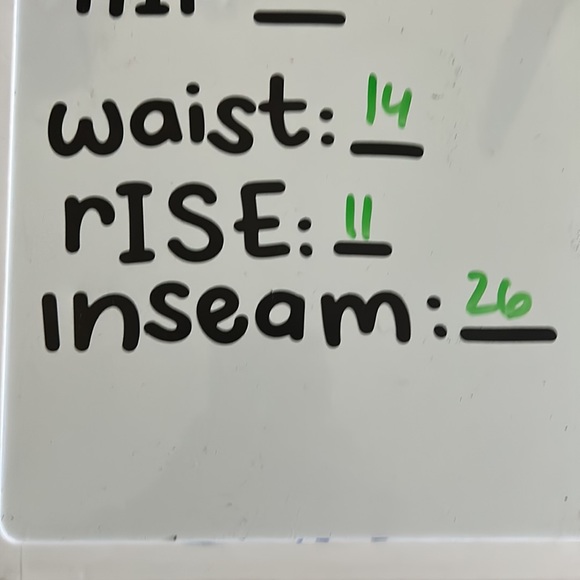 waist: 14
rISE: 11
Inseam: 26